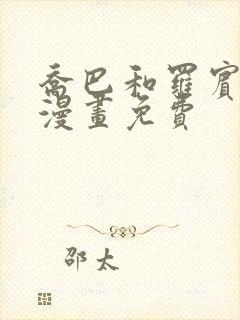 喬巴和羅賓
漫畫免費
邵太